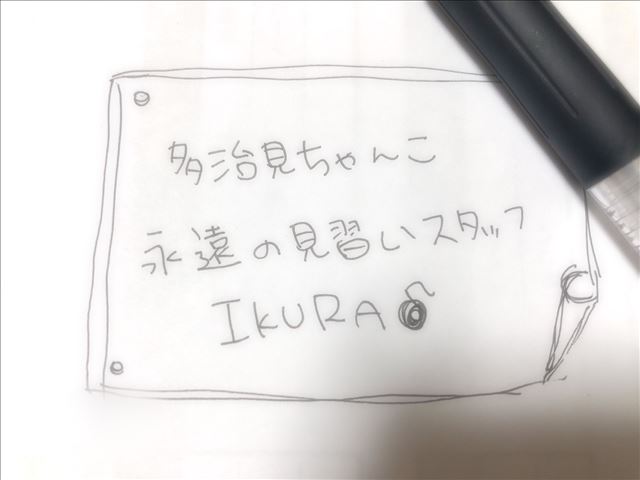 多治見ちゃんこ
永遠の見習いスタッフ
IKURA